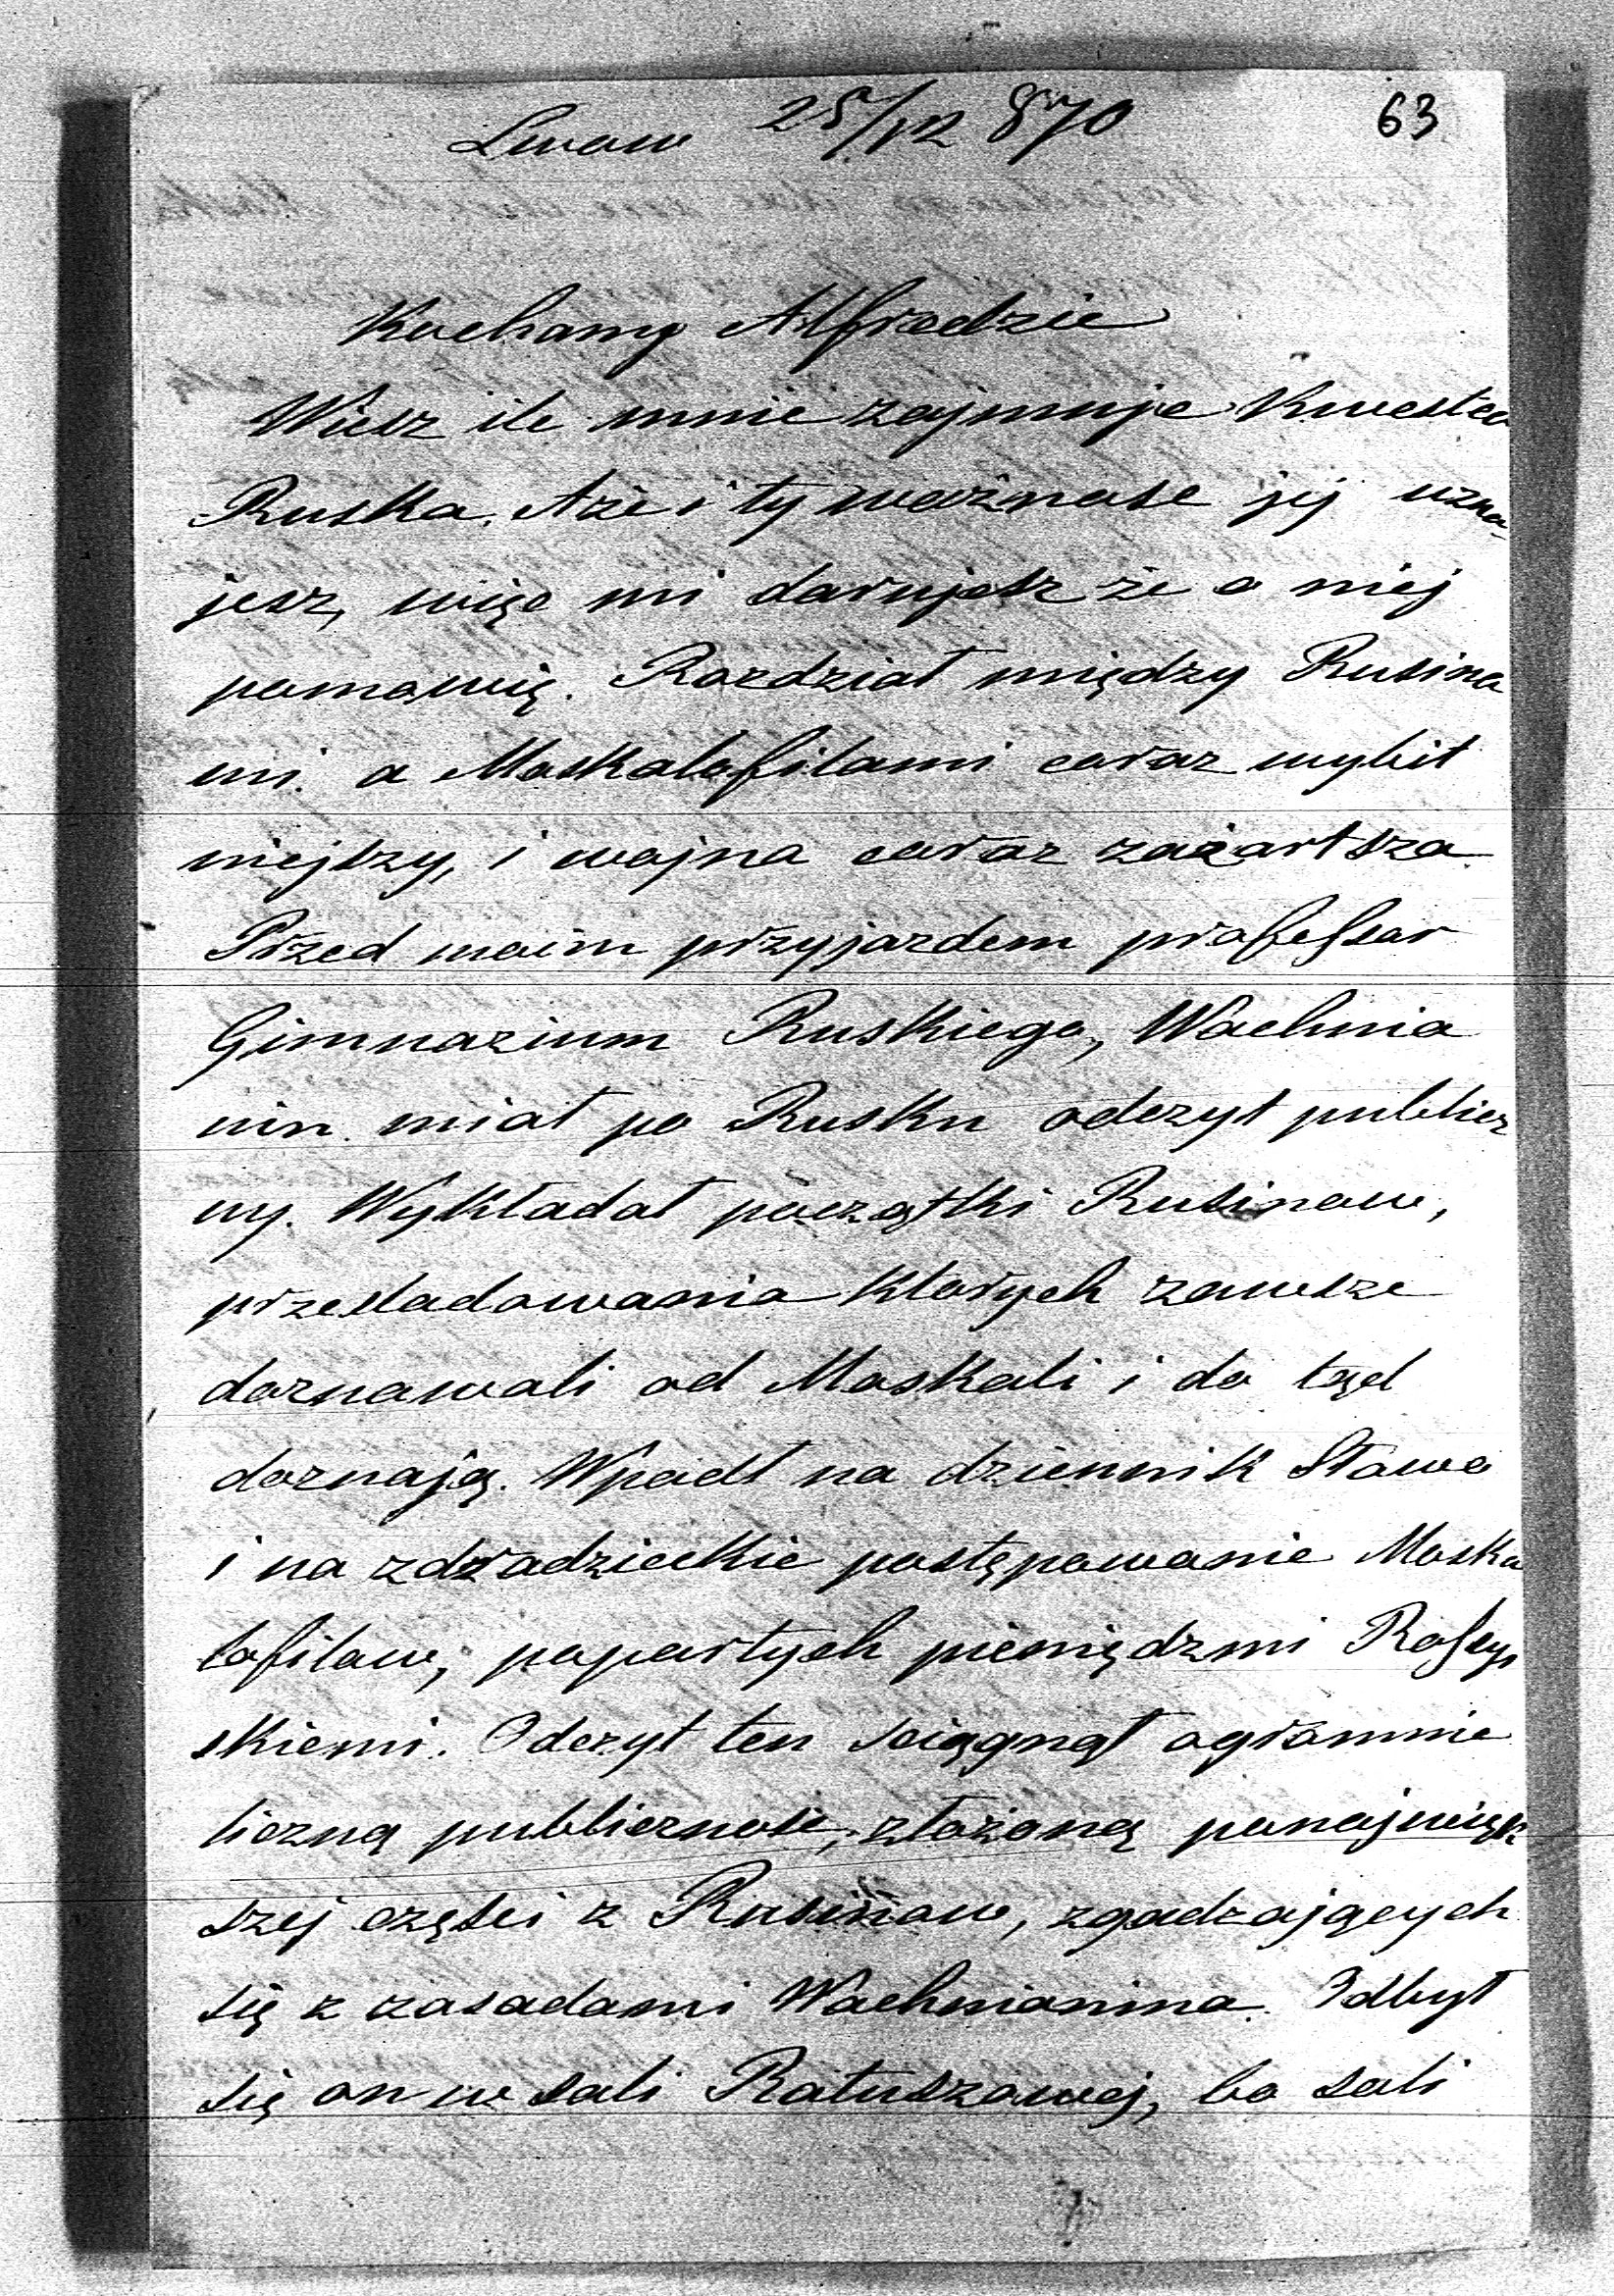 63
Lwow 25/12 870
Kochany Alfredzie
Wiesz ile mnie zajmuje Kwestia
Ruska. A że i ty ważnosc jej uzna
jesz, więc mi darujesz że o niej
pomowię. Rozdział między Rusina
mi a Moskalofilami coraz wybit
niejszy, i wojna coraz zażartsza.
Przed moim przyjazdem professor
Gimnazium Ruskiego, Wachnia
nin miał po Rusku odczyt publicz
ny. Wykładał początki Rusinow,
przesladowania ktorych zawsze
doznawali od Moskali i do tąd
doznają. Wpadł na dziennik Słowo
i na zdradzieckie postępowanie Moska
lofilow, popartych pieniędzmi Rossyj
skiemi. Odczyt ten sciągnął ogromnie
liczną publicznosc, złożoną ponajwięk
szej częsci z Rusinow, zgadzających
się z zasadami Wachnianina. Odbył
się on w sali Ratuszowej, bo sali